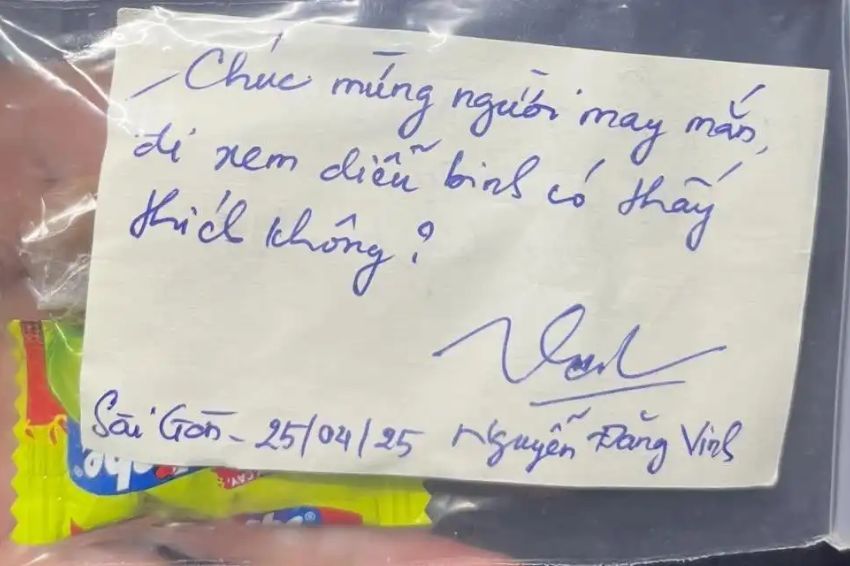 Chúc mừng người may mắn,
đi xem diễu binh có thấy
thích không?
Sài Gòn - 25/04/25 Nguyễn Đăng Vinh